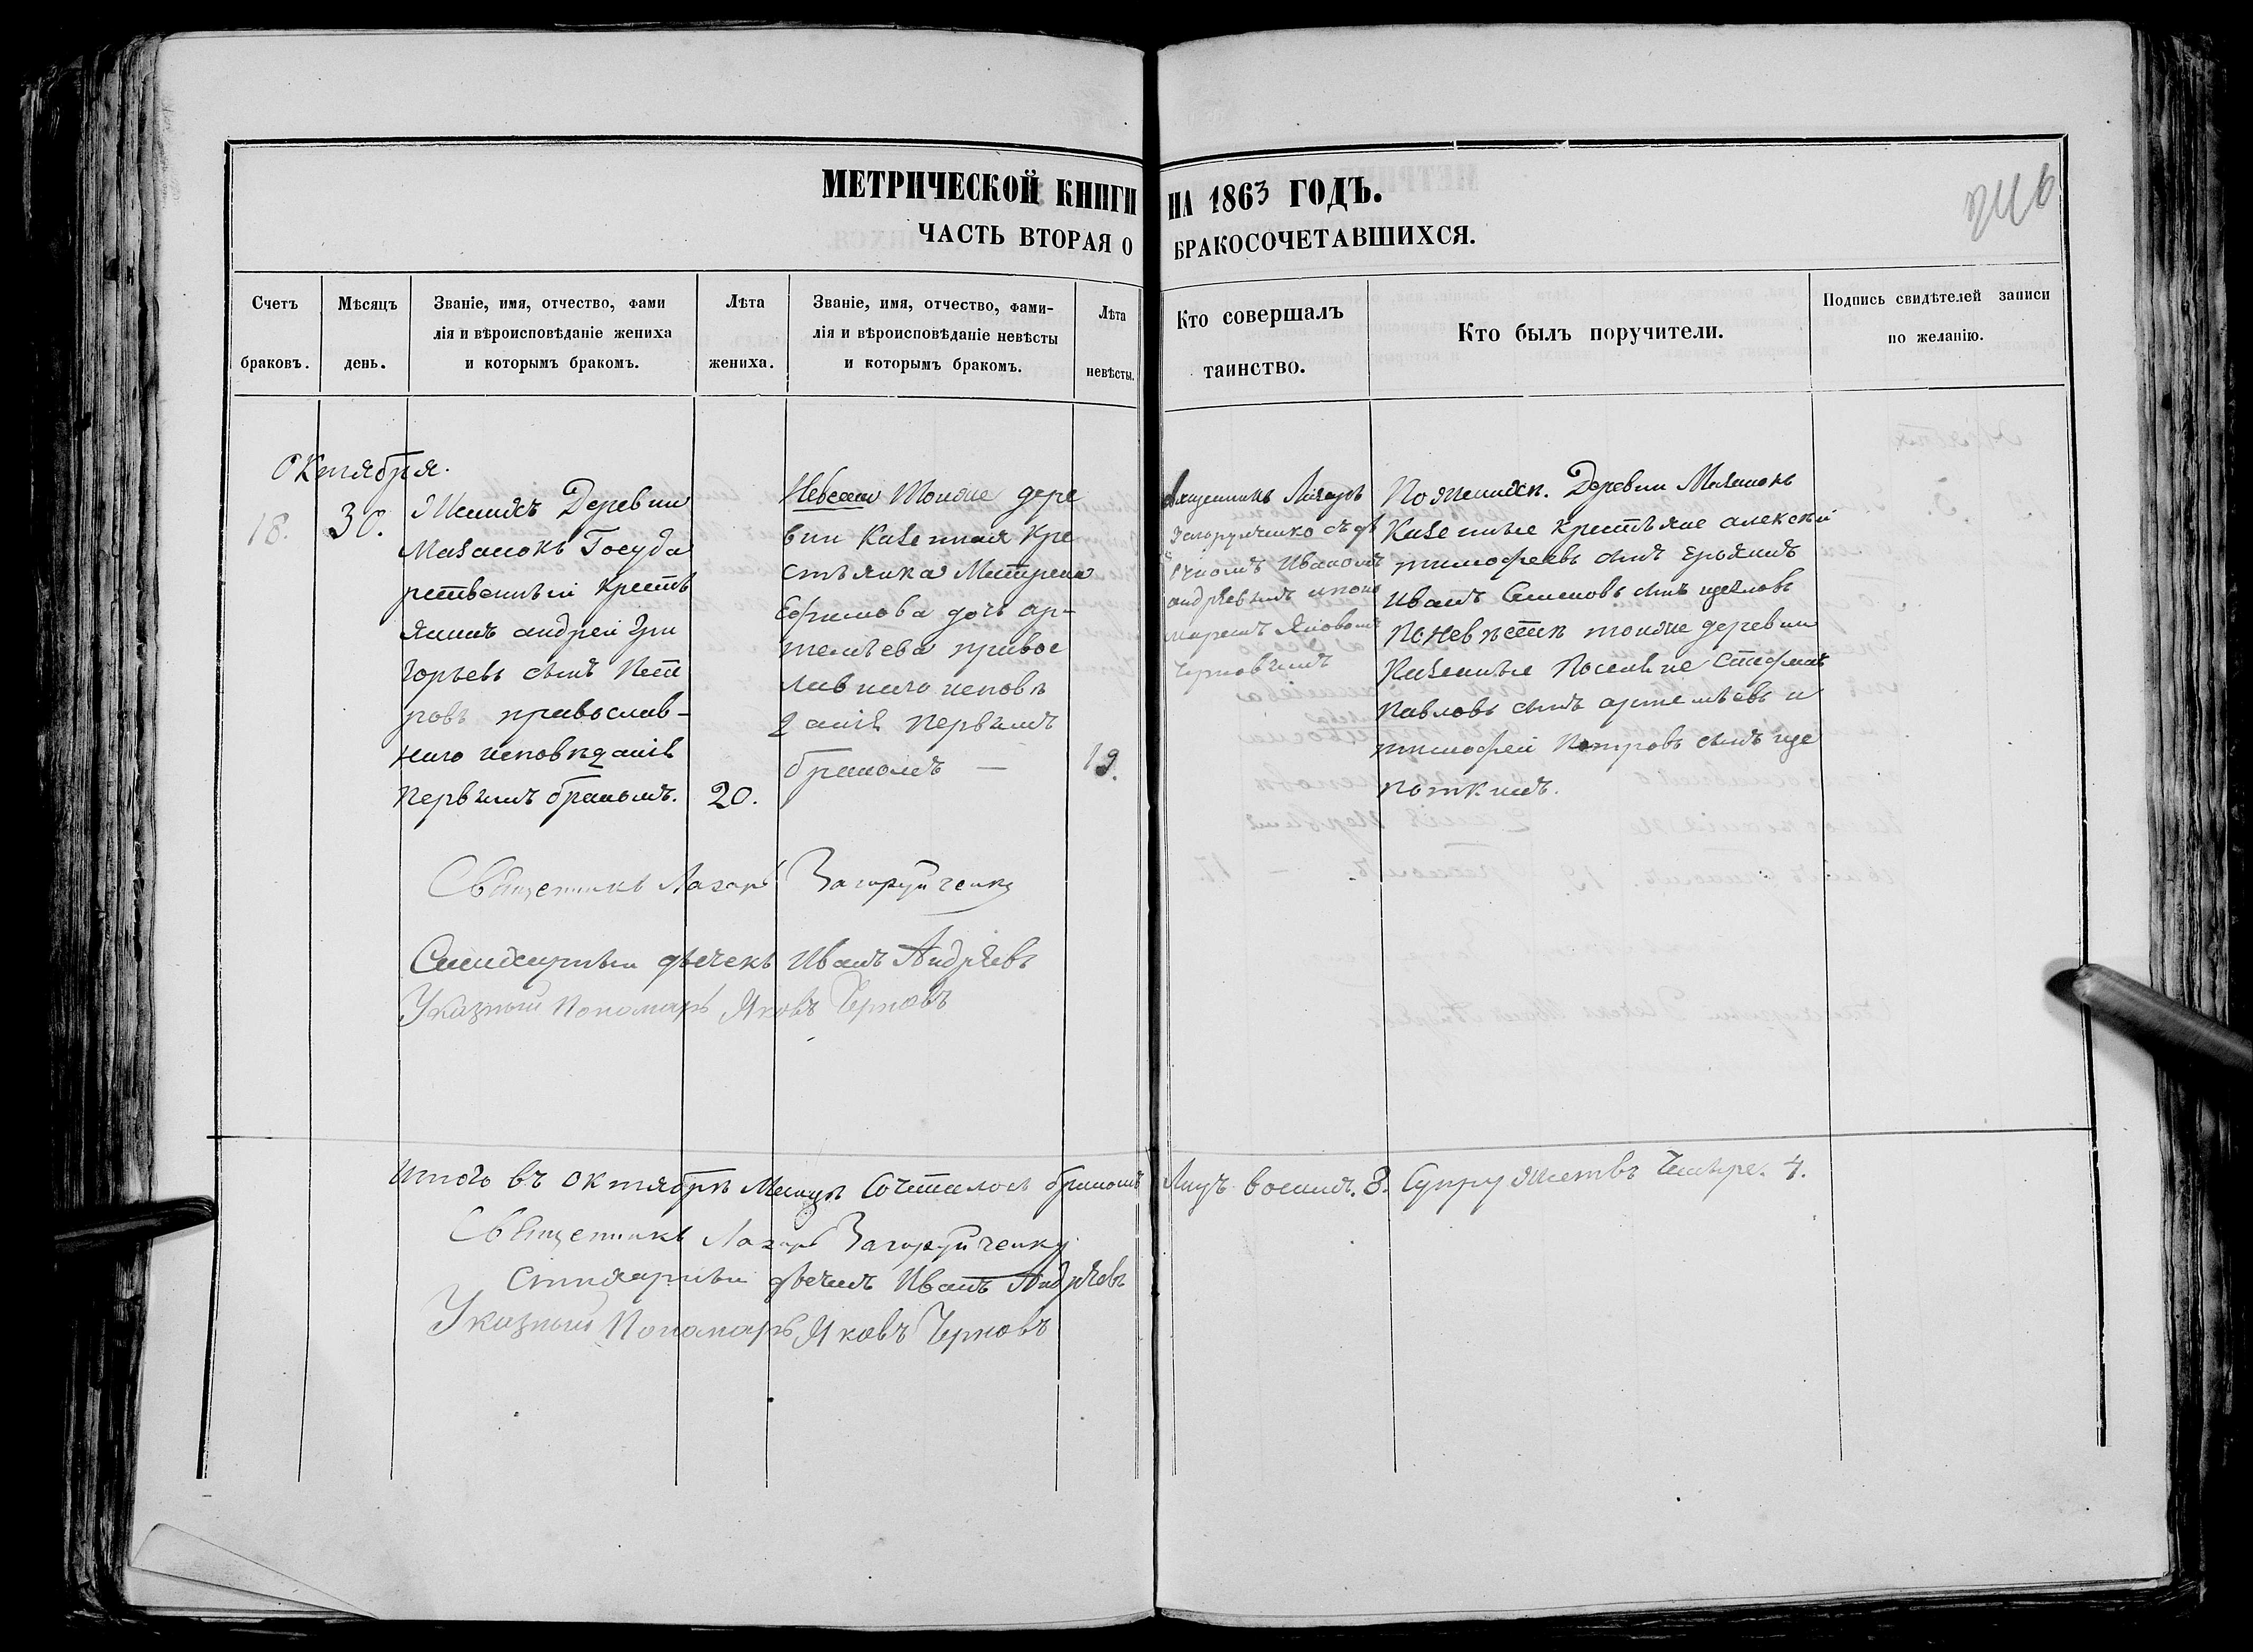 МЕТРИЧЕСКОЙ КНИГИ НА 1863 ГОДЪ.
ЧАСТЬ ВТОРАЯ О БРАКОСОЧЕТАВШИХСЯ.
246
Счетъ браковъ.
Мѣсяцъ день.
Званіе, имя, отчество, фами
лія и вѣроисповѣданіе жениха
и которымъ бракомъ.
Лѣта жениха.
Званіе, имя, отчество, фами-
лія и вѣроисповѣданіе невѣсты
и которымъ бракомъ.
Лѣта невѣсты.
Кто совершалъ
таинство.
Кто былъ поручители.
Подпись свидѣтелей записи
по желанію.
Октября.
18.
30.
Женихъ Деревни
Мазанокъ Госуда
рственный крестъ
янинъ андрей Гри
горьевъ сынъ Пет
ровъ православ-
наго исповѣданія
первымъ бракомъ.
20.
Невеста тоиже дере
вни Казенная Кре
стьянка Матрена
Ефимова дочь ар-
темьева правос
лавнаго исповѣ
данія первымъ
бракомъ —
19.
Священникъ Лазарь
Загоруйченко съ дь
ячкомъ Иваномъ
андрѣевымъ ипоно
маремъ Яковомъ
Черновымъ
По женихѣ. Деревни Мазанокъ
Казенные крестьяне алексѣй
тимофеевъ сынъ
Иванъ Семеновъ сынъ
По невѣстѣ тоиже деревни
Казенные Поселяне Стефанъ
Павловъ сынъ артемьевъ и
тимофей Петровъ сынъ ще
поткинъ.
Священникъ Лазарь Загоруйченко
Стихарный дьячекъ Иванъ Андрѣевъ
Указный Пономарь Яковъ Черновъ
Итого въ октябрѣ Месяцѣ Сочеталось бракомъ Лицъ восимъ. 8. Супружествъ Четыре. 4.
Священникъ Лазарь Загоруйченко
Стихарный дьячекъ Иванъ Андрѣевъ
Указный Пономарь Яковъ Черновъ